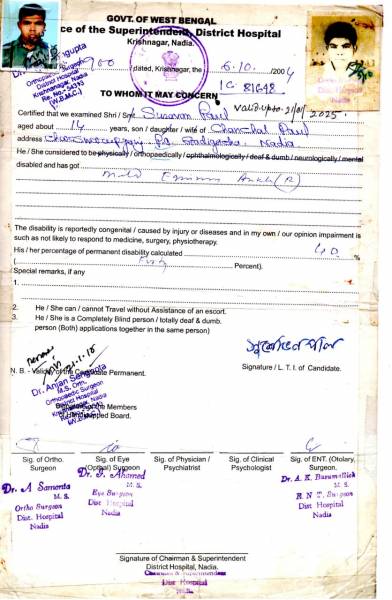 GOVT. OF WEST BENGAL
ce of the Superintendent, District Hospital
Krishnanagar, Nadia.
900 / dated, Krishnanagar, the 6.10. /2004
TO WHOM IT MAY CONCERN
Valid upto- 21/01/2025.
Certified that we examined Shri / Smt
aged about 14 years, son / daughter / wife of Chanchal Paul
address Nadia
He / She considered to be physically / orthopaedically / ophthalmologically / deaf & dumb / neurologically / mental
disabled and has got
The disability is reportedly congenital / caused by injury or diseases and in my own / our opinion impairment is
such as not likely to respond to medicine, surgery, physiotherapy.
His / her percentage of permanent disability calculated 40 %
( Forty Percent).
Special remarks, if any
1.
2. He / She can / cannot Travel without Assistance of an escort.
3. He / She is a Completely Blind person / totally deaf & dumb.
person (Both) applications together in the same person)
Signature / L. T. I. of Candidate.
N. B. - Validity of the Candidate Permanent.
Dr. Anjan Sengupta
M.S. Orth.
Orthopaedic Surgeon
District Hospital
Members
Handicapped Board.
Sig. of Ortho. Surgeon
Sig. of Eye (Opthal) Surgeon
Sig. of Physician / Psychiatrist
Sig. of Clinical Psychologist
Sig. of ENT. (Otolary, Surgeon.
Dr. A Samonta
M. S.
Ortho Surgeon
Dist. Hospital
Nadia
Dr. J. Ahamed
M. S.
Eye Surgeon
Dist Hospital
Nadia
Dr. A. K.
M. S.
E N T. Surgeon
Dist Hospital
Nadia
Signature of Chairman & Superintendent
District Hospital, Nadia.
Chairman & Superintendent
Dist Hospital
Nadia